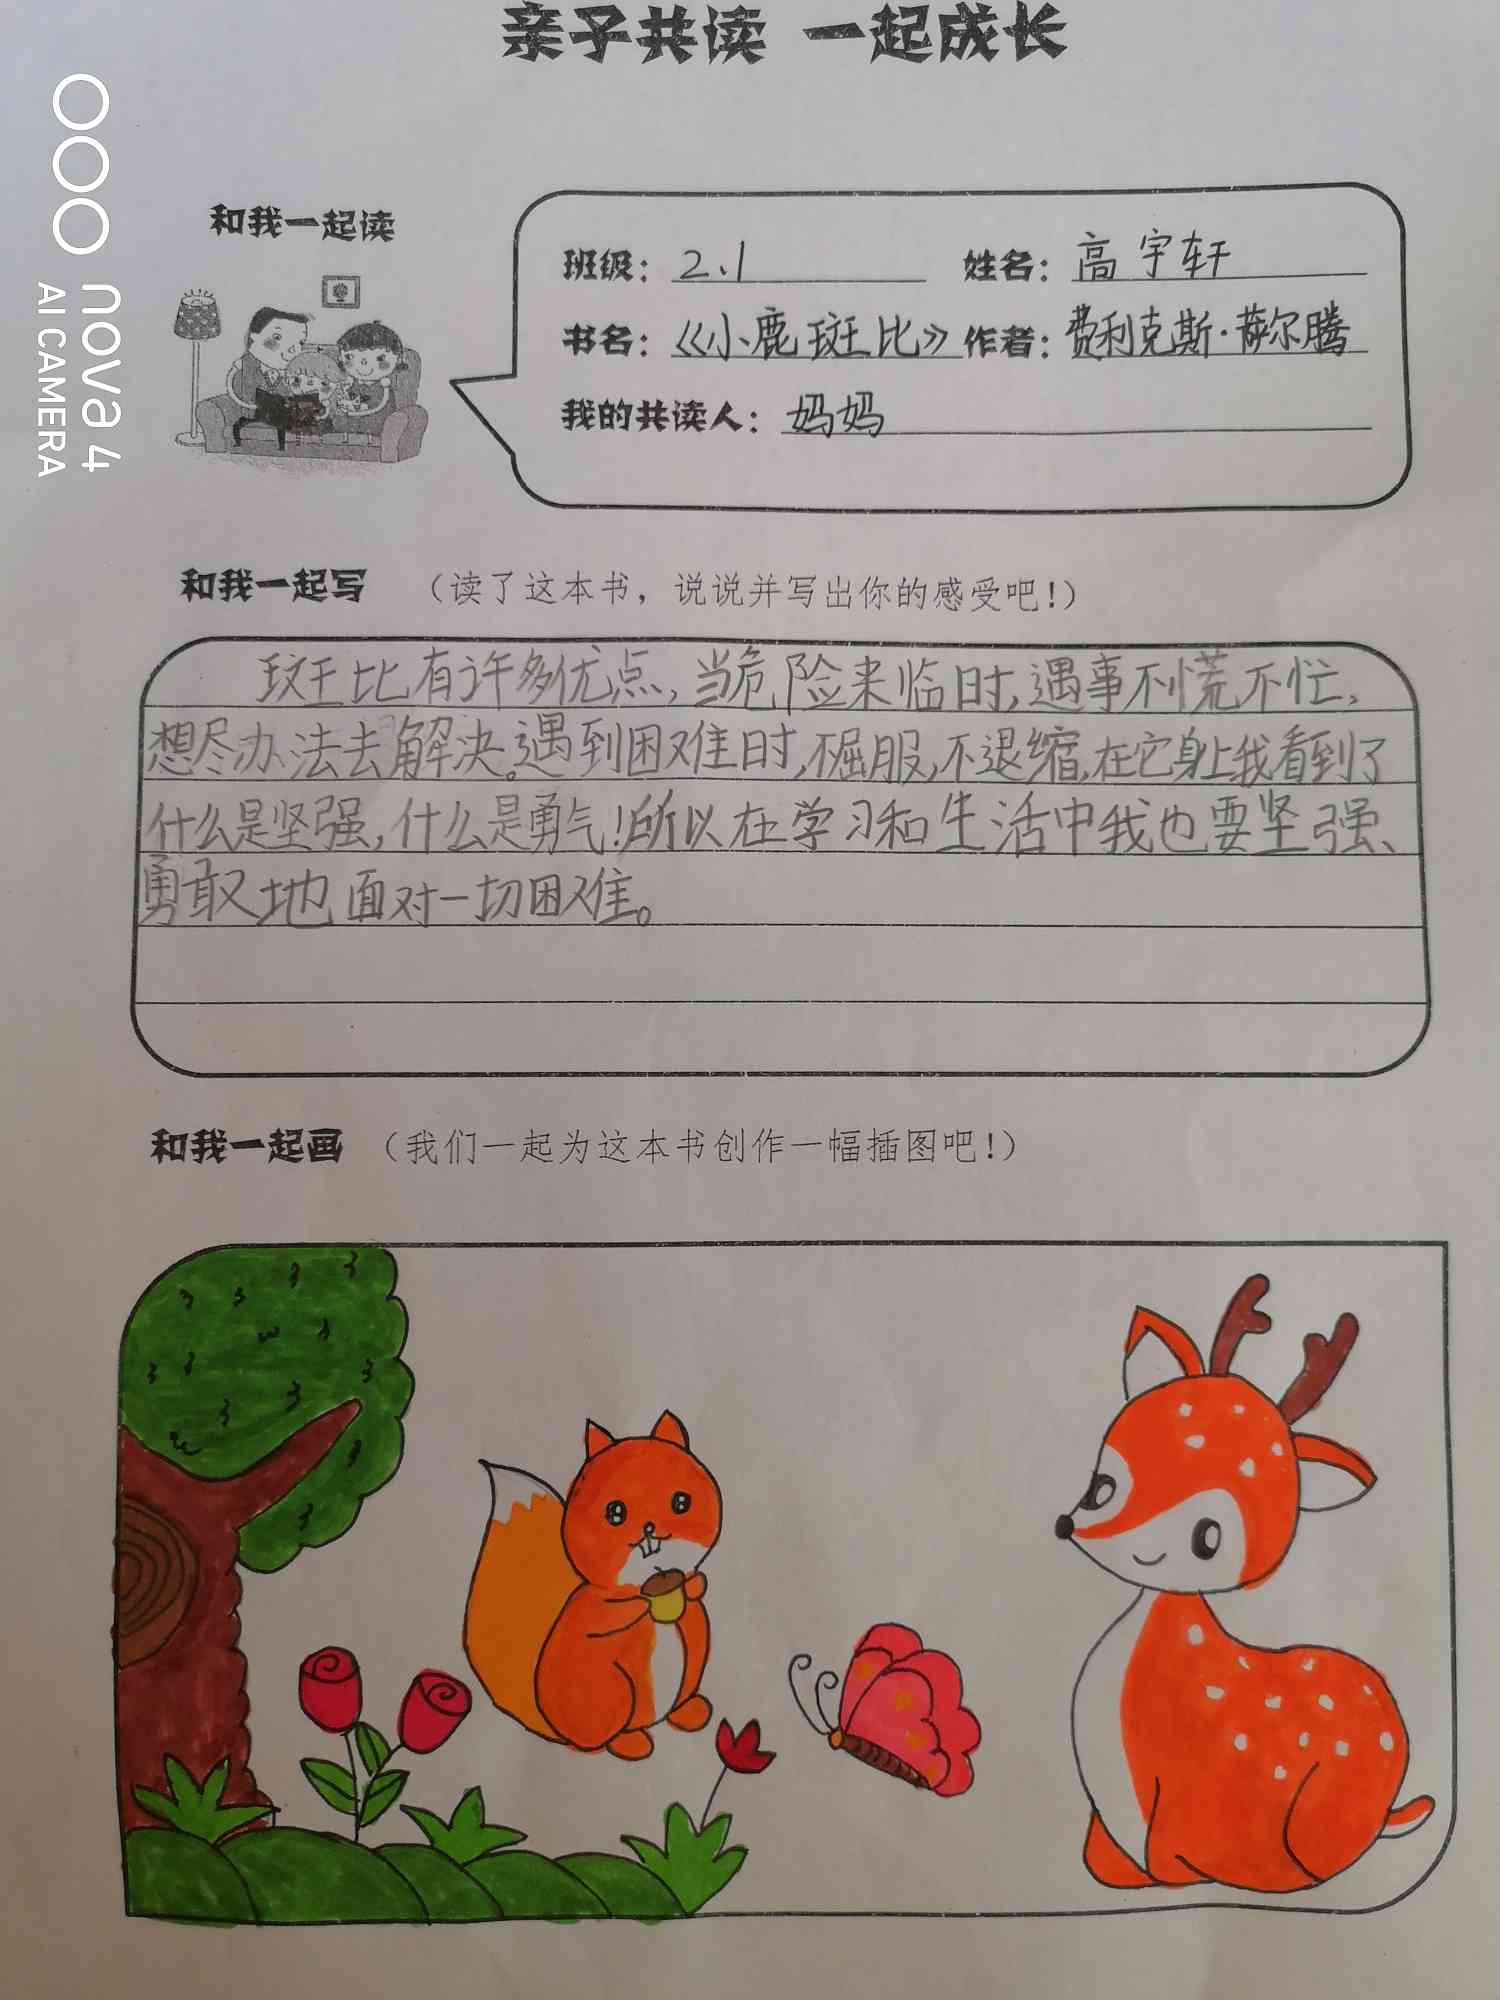 亲子共读 一起成长
和我一起读
班级：2、1 姓名：高宇轩
书名：《小鹿斑比》作者：费利克斯·萨尔腾
我的共读人：妈妈
和我一起写 （读了这本书，说说并写出你的感受吧！）
斑比有许多优点，当危险来临时，遇事不慌不忙，
想尽办法去解决。遇到困难时，不屈服，不退缩，在它身上我看到了
什么是坚强，什么是勇气！所以在学习和生活中我也要坚强、
勇敢地面对一切困难。
和我一起画 （我们一起为这本书创作一幅插图吧！）
nova 4
AI CAMERA